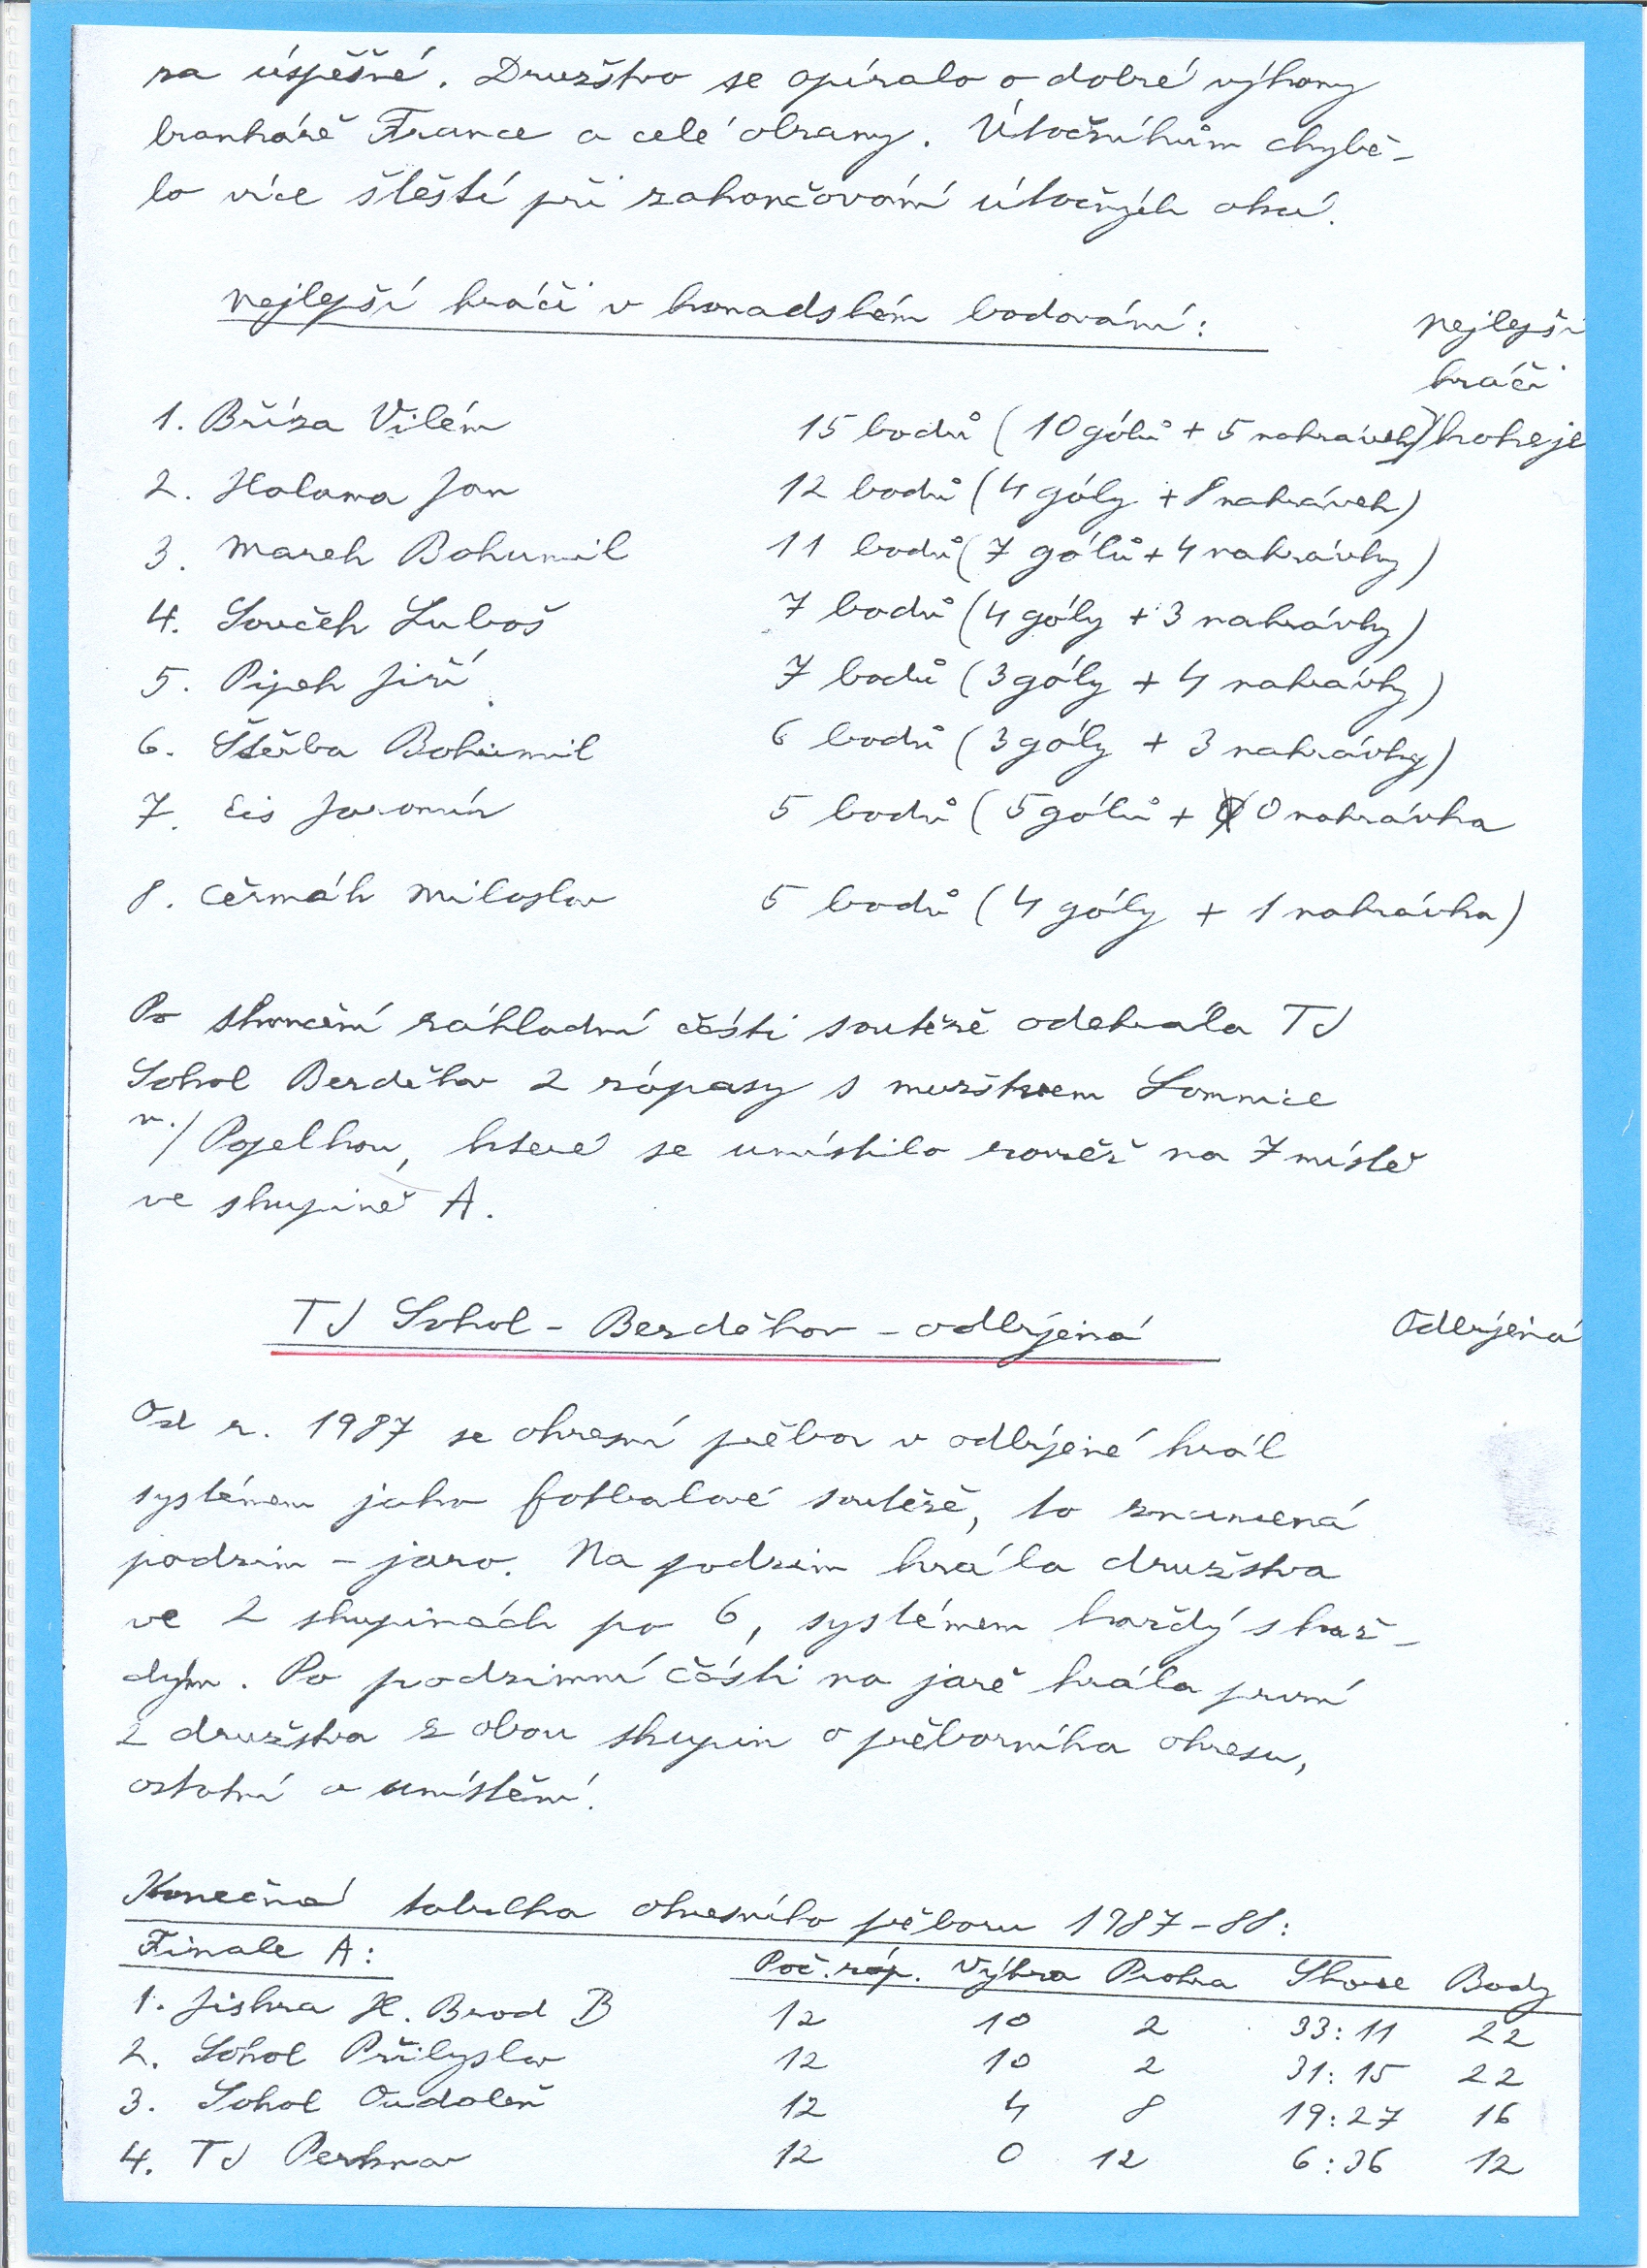 za úspěšné. Družstvo se opíralo o dobré výkony
brankáře France a celé obrany. Útočníkům chybě-
lo více štěstí při zakončování útočných akcí.
nejlepší hráči v kanadském bodování:
nejlepší
hráči
hokeje
1. Bříza Vilém 15 bodů (10 gólů + 5 nahrávek)
2. Halama Jan 12 bodů (4 góly + 8 nahrávek)
3. Marek Bohumil 11 bodů (7 gólů + 4 nahrávky)
4. Souček Luboš 7 bodů (4 góly + 3 nahrávky)
5. Pipek Jiří 7 bodů (3 góly + 4 nahrávky)
6. Štěrba Bohumil 6 bodů (3 góly + 3 nahrávky)
7. Eis Jaromír 5 bodů (5 gólů + 0 nahrávka
8. Čermák Miloslav 5 bodů (4 góly + 1 nahrávka)
Po skončení základní části soutěže odehrála TJ
Sokol Berděkov 2 zápasy s mužstvem Lomnice
n./Popelkou, které se umístilo rovněž na 7 místě
ve skupině A.
TJ Sokol - Bezděkov - odbíjená
Odbíjená
Od r. 1987 se okresní přebor v odbíjené hrál
systémem jako fotbalové soutěže, to znamená
podzim - jaro. Na podzim hrála družstva
ve 2 skupinách po 6, systémem každý s kaž-
dým. Po podzimní části na jaře hrála první
2 družstva z obou skupin o přeborníka okresu,
ostatní o umístění.
Konečná tabulka okresního přeboru 1987-88:
Finale A: Poč. záp. Výhra Prohra Skore Body
1. Jiskra H. Brod B 12 10 2 33:11 22
2. Sokol Přibyslav 12 10 2 31:15 22
3. Sokol Oudoleň 12 4 8 19:27 16
4. TJ Perknov 12 0 12 6:36 12